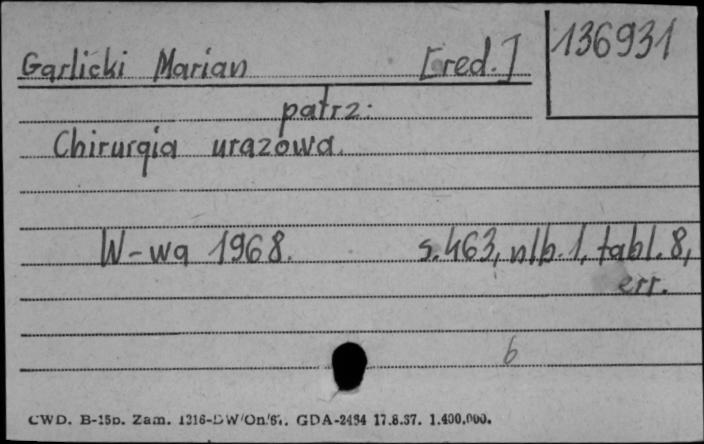 136931
Garlicki Marian [red.]
patrz:
Chirurgia urazowa.
W-wa 1968. s. 463, nlb. 1, tabl. 8,
err.
b
CWD. B-15p. Zam. GDA-2434 17.8.57. 1.400.000.